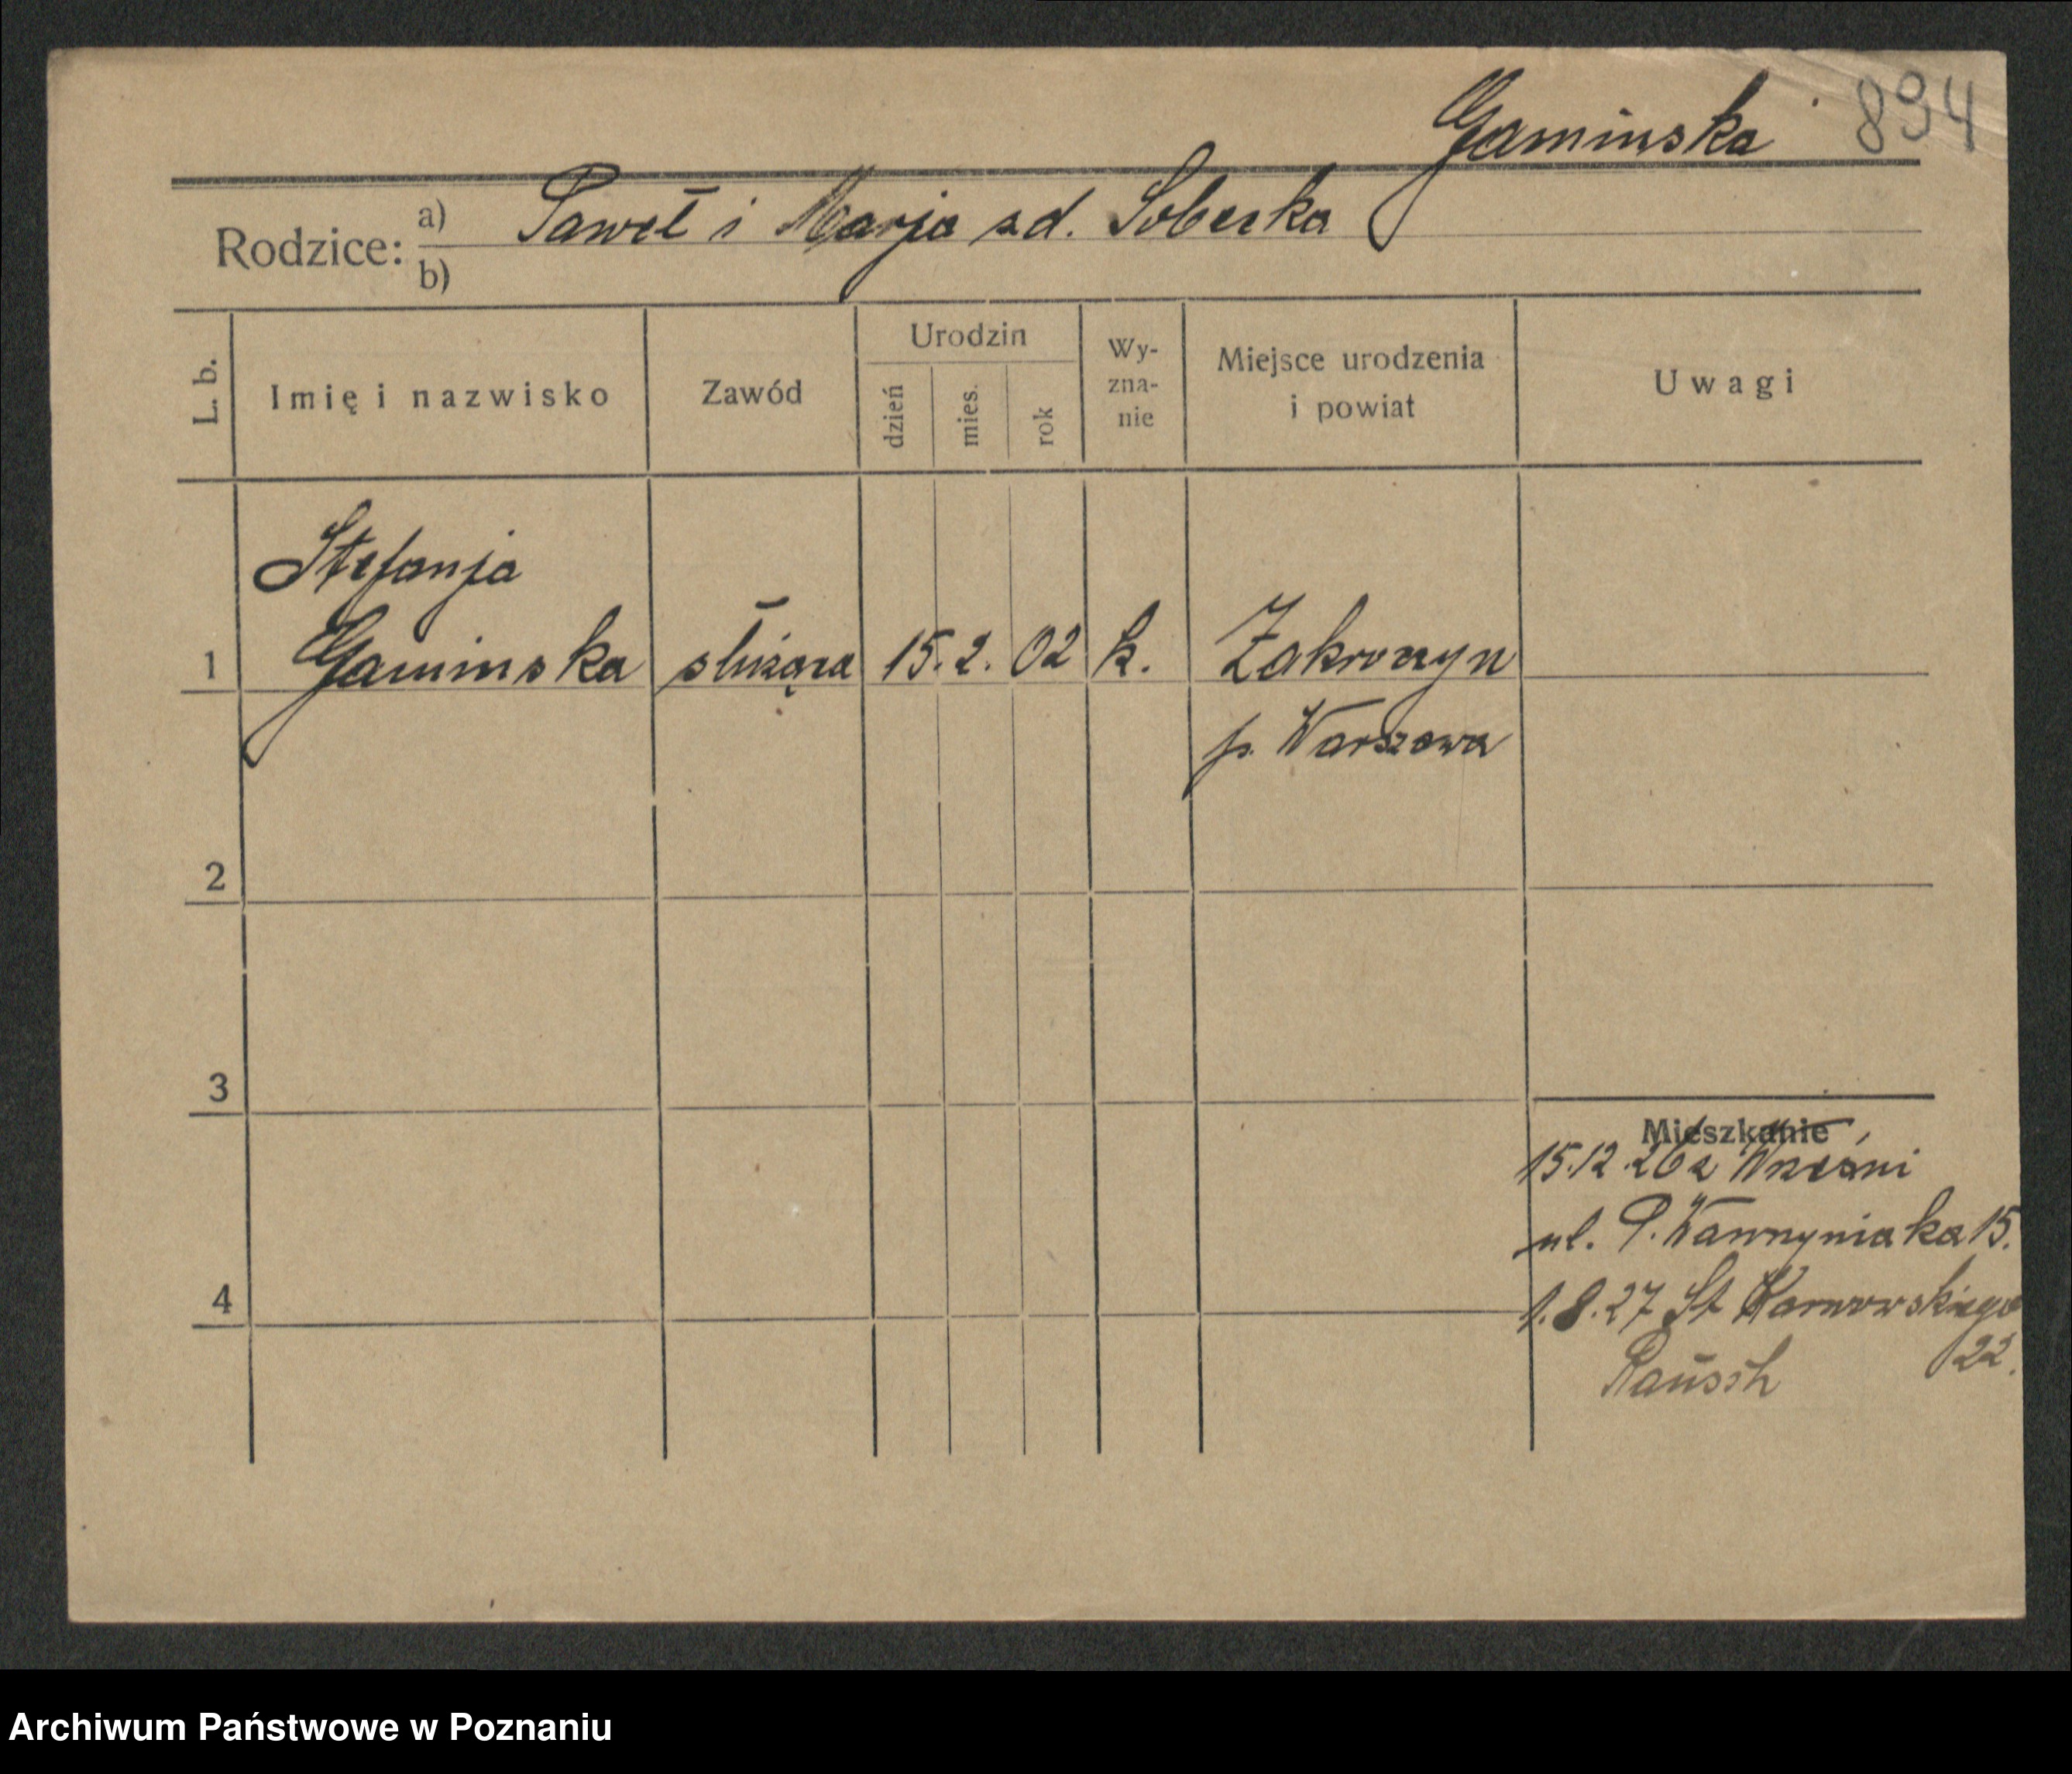 Gaminska 894
Rodzice: a) Paweł i Marja zd. Soberka
b)
L. b.
Imię i nazwisko
Zawód
Urodzin
dzień
mies.
rok
Wy-
zna-
nie
Miejsce urodzenia
i powiat
Uwagi
Stefanja
1 Gaminska służąca 15. 2. 02 k. Zakroczyn
p. Warszawa
2
3
Mieszkanie
15.12.26 z Wrześni
ul. P. Wawrzyniaka 15.
4
1.8.27 St Karwowskiego
22.
Rausch
Archiwum Państwowe w Poznaniu